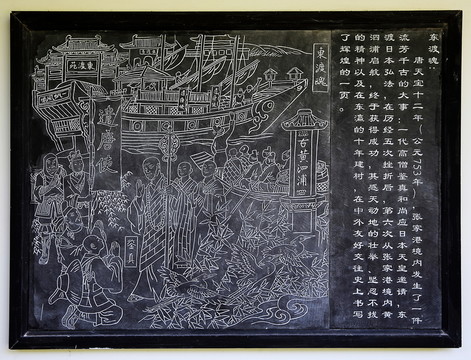 东渡魂:
唐天宝十二年(公元753年,张家港境内发生了一件
流芳千古的大事:一代高僧鉴真和尚应日本天皇邀请,东
渡日本弘法,在历经五次挫折后,第六次从张家港境内黄
泗浦启航,终于获得成功。其感天动地的壮举、坚忍不拔
的精神以及在东瀛的十年建树,在中外友好交往史上书写
了辉煌的一页。
東渡魂
古黄泗浦
東渡苑
遣唐使